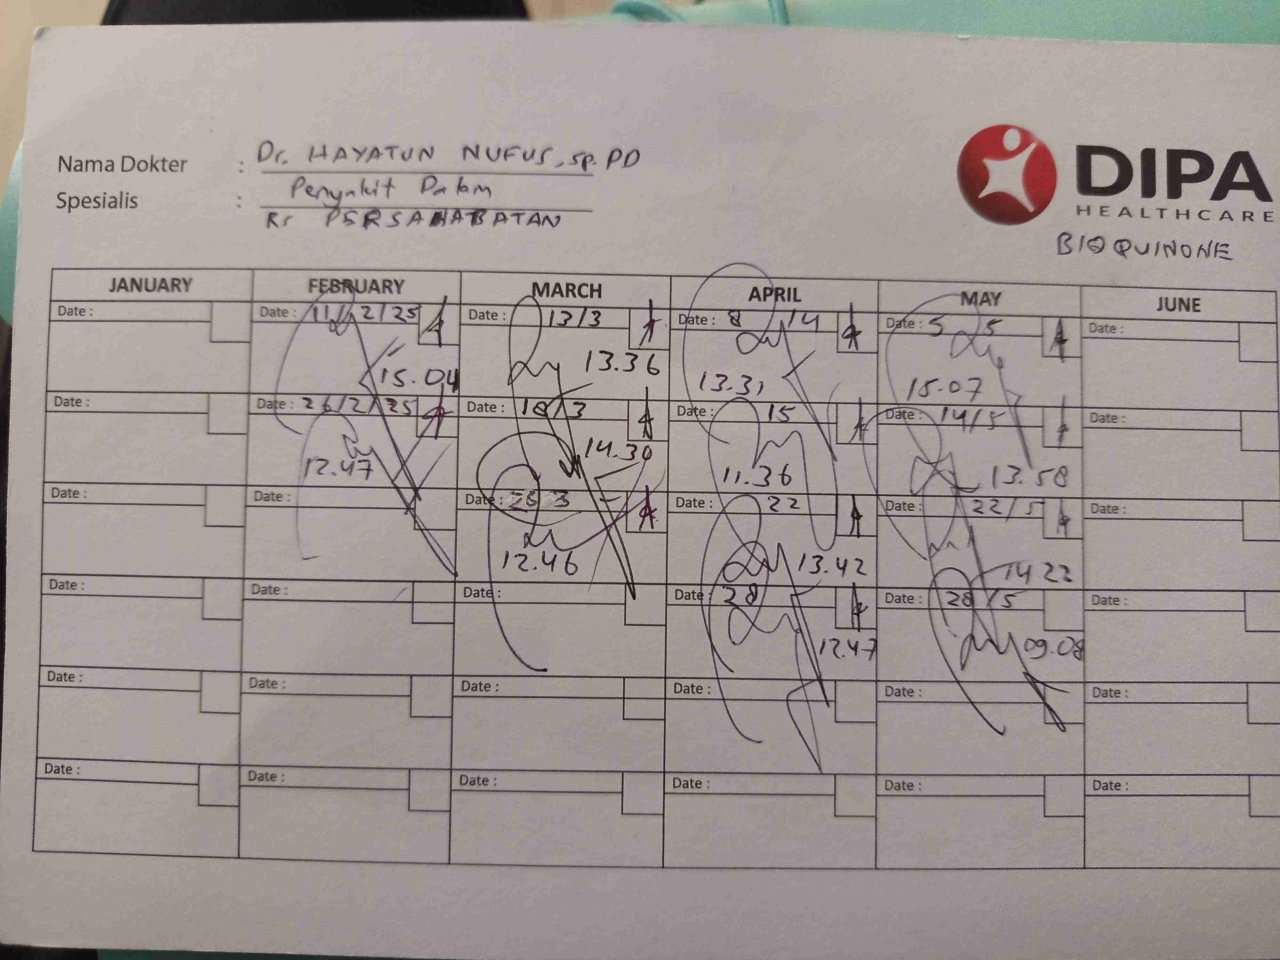 Nama Dokter : Dr. HAYATUN NUFUS, Sp.PD
Spesialis : Penyakit Dalam
RS PERSAHABATAN
DIPA
HEALTHCARE
BIOQUINONE
JANUARY FEBRUARY MARCH APRIL MAY JUNE
Date : Date : 11/2/25 Date : 13/3 Date : 8 14 Date : 5 5 Date :
15.04 13.36 13.31 15.07
Date : Date : 26/2/25 Date : 18/3 Date : 15 Date : 14/5 Date :
12.47 14.30 11.36 13.58
Date : Date : Date : 25 3 Date : 22 Date : 22/5 Date :
12.46 13.42 14.22
Date : Date : Date : Date : 28 Date : 28/5 Date :
12.47 09.08
Date : Date : Date : Date : Date : Date :
Date : Date : Date : Date : Date : Date :